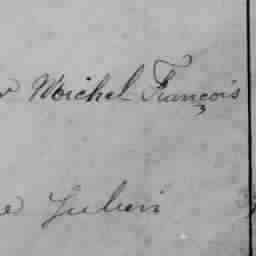 Michel François
Julien